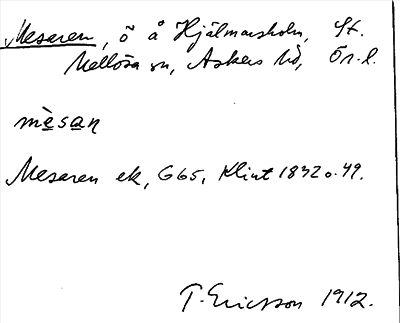 Mesaren, ö å Hjälmarsholm, St.
Mellösa sn, Askers hd, Ör. l.
mèsan
Mesaren ek, G65, Klint 1832 o. 49.
T. Ericsson 1912.